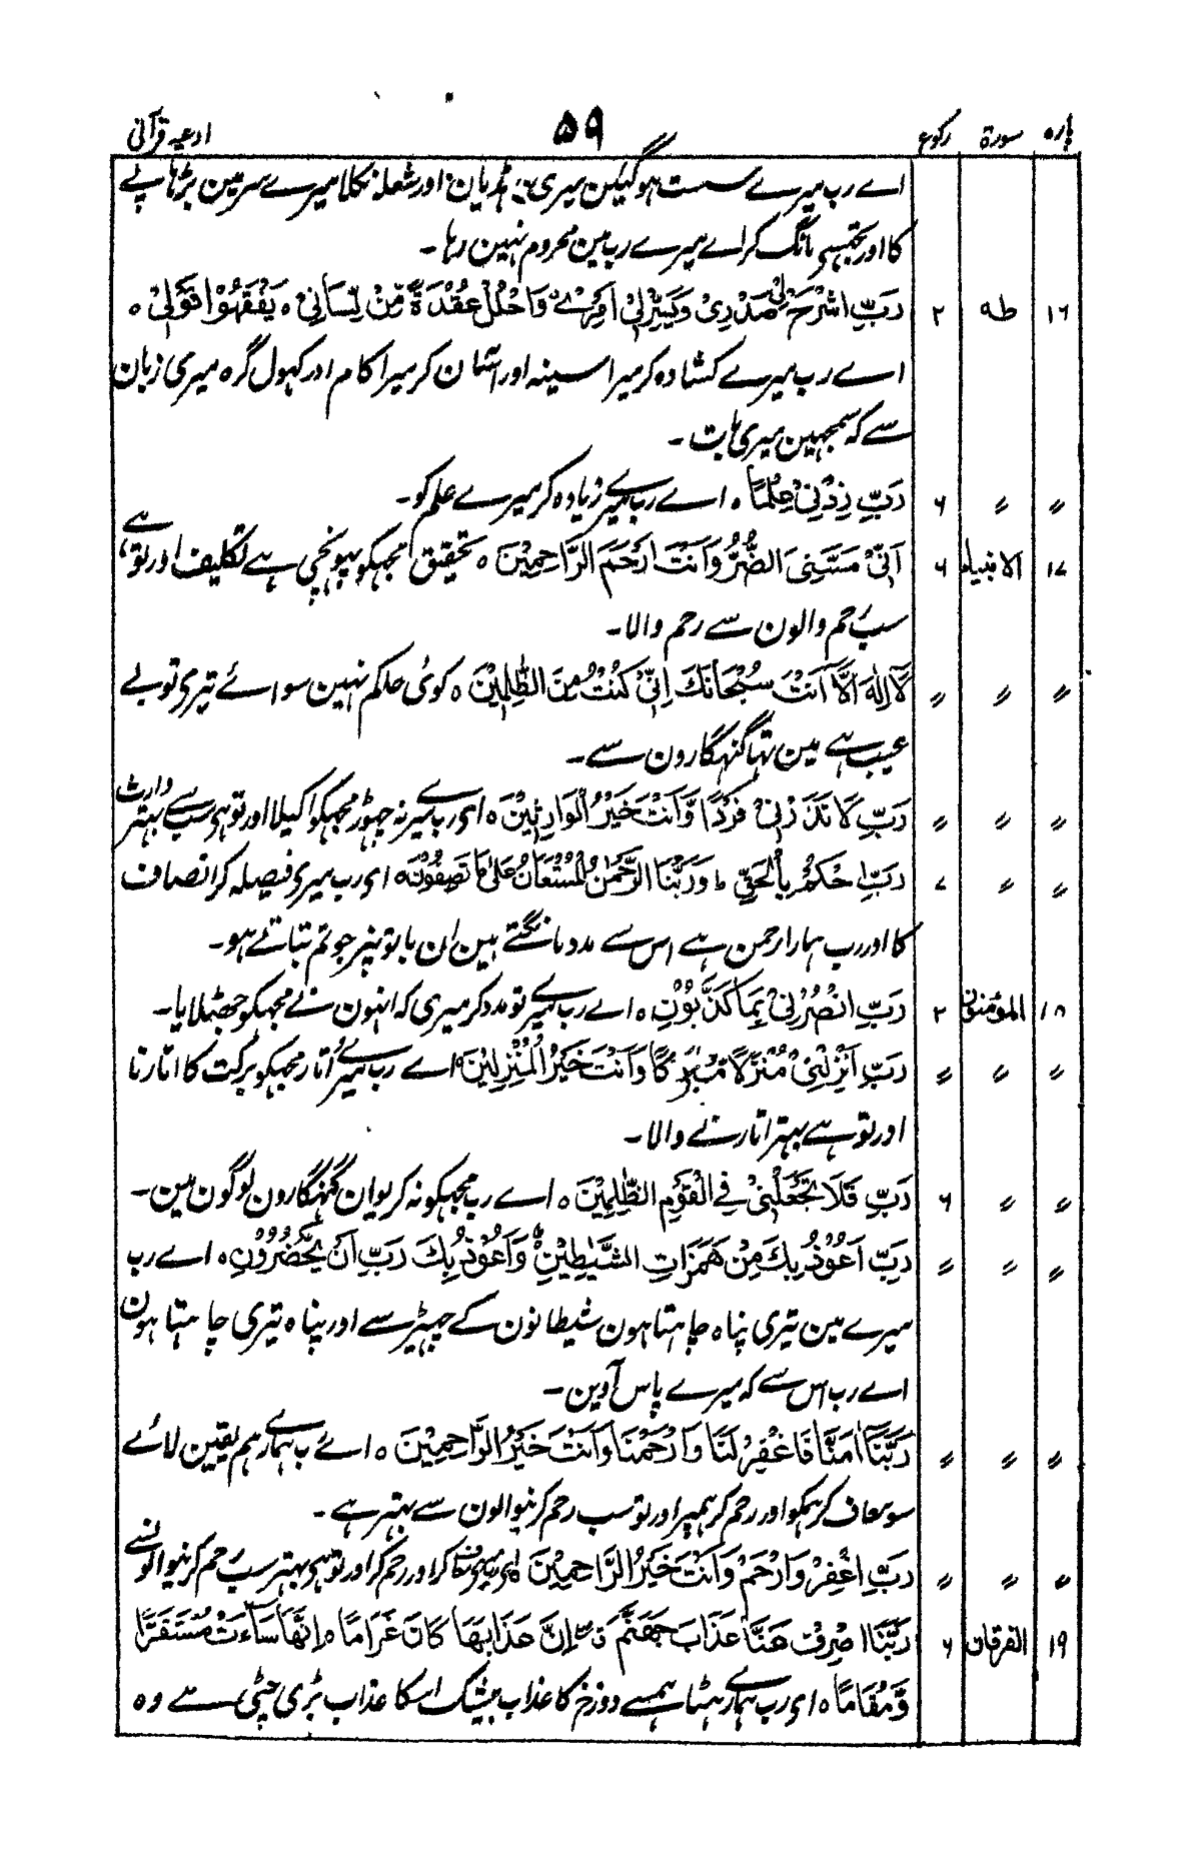 پارہ سورۃ رکوع ۵۹ ادعیہ قرآنی
اے رب میرے سست ہوگیکن میری ہڈیان اور شعلہ نکلا میرے سر مین بڑہاپے
کا اور تجہسے مانگ کر اے میرے رب مین محروم نہین رہا ۔
۱۶ طہ ۲ رَبِّ اشْرَحْ لِیْ صَدْرِیْ وَیَسِّرْلِیْ اَمْرِیْ وَاحْلُلْ عُقْدَۃً مِّنْ لِّسَانِیْ ہ یَفْقَہُوْا قَوْلِیْ ہ
اے رب میرے کشادہ کر میرا سینہ اور آسان کر میرا کام اور کہول گرہ میری زبان
سے کہ سمجہین میری بات ۔
〃 〃 ۶ رَبِّ زِدْنِیْ عِلْمًا ہ اے رب میرے زیادہ کر میرے علم کو ۔
۱۷ الانبیاء ۶ اَنِّیْ مَسَّنِیَ الضُّرُّ وَاَنْتَ اَرْحَمُ الرَّاحِمِیْنَ ہ تحقیق مجہکو پہونچی ہے تکلیف اور تو ہے
سب رحم والون سے رحم والا ۔
〃 〃 〃 لَآ اِلٰہَ اِلَّآ اَنْتَ سُبْحَانَکَ اِنِّیْ کُنْتُ مِنَ الظّٰلِمِیْنَ ہ کوئی حاکم نہین سوائے تیری تو بے
عیب ہے مین تہا گنہگارون سے ۔
〃 〃 〃 رَبِّ لَا تَذَرْنِیْ فَرْدًا وَّاَنْتَ خَیْرُ الْوَارِثِیْنَ ہ ای رب میرے نہ چہوڑ مجہکو اکیلا اور تو ہی سب سے بہتر وارث
〃 〃 ۷ رَبِّ احْکُمْ بِالْحَقِّ ط وَرَبُّنَا الرَّحْمٰنُ الْمُسْتَعَانُ عَلٰی مَا تَصِفُوْنَ ہ ای رب میری فیصلہ کر انصاف
کا اور رب ہمارا رحمن ہے اس سے مدد مانگتے ہین ان باتونپر جو تم بتاتے ہو ۔
۱۸ المؤمنون ۲ رَبِّ انْصُرْنِیْ بِمَا کَذَّبُوْنِ ہ اے رب میرے تو مدد کر میری کہ انہون نے مجہکو جھٹلایا ۔
〃 〃 〃 رَبِّ اَنْزِلْنِیْ مُنْزَلًا مُّبٰرَکًا وَّاَنْتَ خَیْرُ الْمُنْزِلِیْنَ ہ اے رب میرے اُتار مجہکو برکت کا اتارنا
اور تو ہے بہتر اتارنے والا ۔
〃 〃 ۶ رَبِّ فَلَا تَجْعَلْنِیْ فِی الْقَوْمِ الظّٰلِمِیْنَ ہ اے رب مجہکو نہ کریو ان گنہگارون لوگون مین ۔
〃 〃 〃 رَبِّ اَعُوْذُ بِکَ مِنْ ہَمَزَاتِ الشَّیٰطِیْنِ ہ وَاَعُوْذُ بِکَ رَبِّ اَنْ یَّحْضُرُوْنِ ہ اے رب
میرے مین تیری پناہ چاہتا ہون شیطانون کے چہیڑ سے اور پناہ تیری چاہتا ہون
اے رب اس سے کہ میرے پاس آوین ۔
〃 〃 〃 رَبَّنَآ اٰمَنَّا فَاغْفِرْ لَنَا وَارْحَمْنَا وَاَنْتَ خَیْرُ الرَّاحِمِیْنَ ہ اے رب ہمارے ہم یقین لائے
سو معاف کر ہمکو اور رحم کر ہمپر اور تو سب رحم کرنیوالون سے بہتر ہے ۔
〃 〃 〃 رَبِّ اغْفِرْ وَارْحَمْ وَاَنْتَ خَیْرُ الرَّاحِمِیْنَ ای رب میری معاف کر اور رحم کر اور تو ہی بہتر سب رحم کرنیوالونسے
۱۹ الفرقان ۶ رَبَّنَا اصْرِفْ عَنَّا عَذَابَ جَہَنَّمَ اِنَّ عَذَابَہَا کَانَ غَرَامًا ہ اِنَّہَا سَآءَتْ مُسْتَقَرًّا
وَّمُقَامًا ہ ای رب ہمارے ہٹا ہمسے دوزخ کا عذاب بیشک اسکا عذاب بڑی چٹی ہے وہ